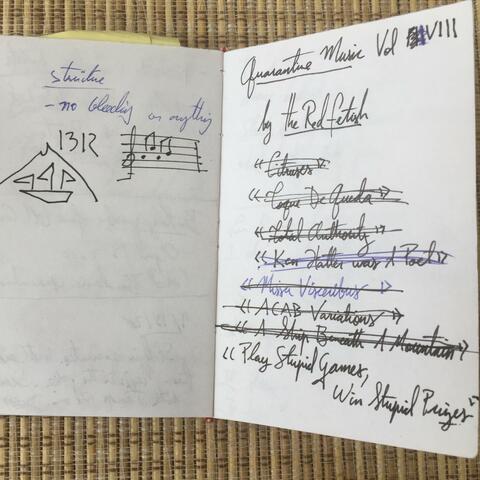 structure
- no bleeding or anything
1312
Quarantine Music Vol VIII
by the Red Fetish
« Citruses »
« Toque De Queda »
« Total Authority »
« Ken Hatter was A Poet »
« Missa Visceribus »
« ACAB Variations »
« A Ship Beneath A Mountain »
« Play Stupid Games,
Win Stupid Prizes »